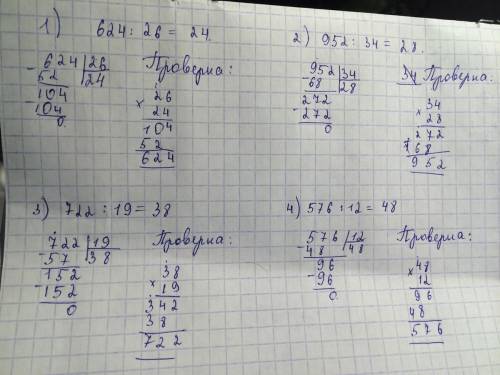 1) 624 : 26 = 24.
- 624 | 26
52 | 24
104
- 104
0
Проверка:
26
× 24
104
52
624
2) 952 : 34 = 28.
- 952 | 34
68 | 28
272
- 272
0
Проверка:
34
× 28
272
68
952
3) 722 : 19 = 38
- 722 | 19
57 | 38
152
- 152
0
Проверка:
38
× 19
342
38
722
4) 576 : 12 = 48
- 576 | 12
48 | 48
96
- 96
0
Проверка:
× 48
12
96
48
576